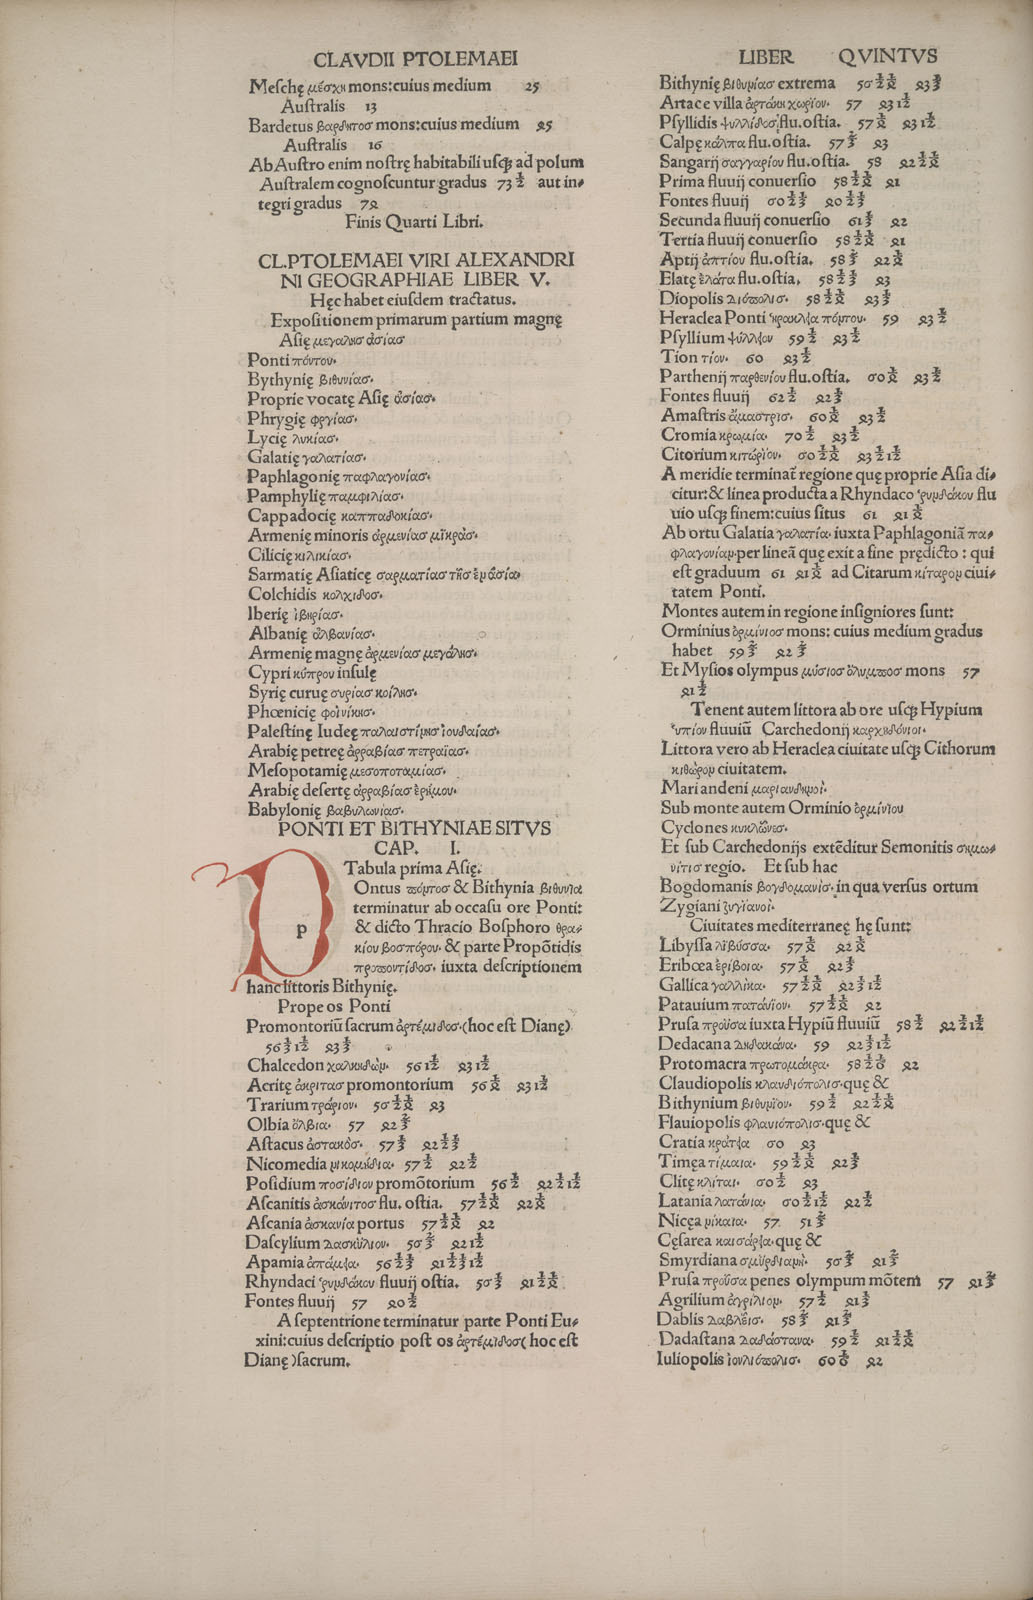 CLAVDII PTOLEMAEI
Meſchę μέσχη mons:cuius medium 25
Auſtralis 13
Bardetus βαρδητοσ mons:cuius medium 25
Auſtralis 16
Ab Auſtro enim noſtrę habitabili uſq; ad polum
Auſtralem cognoſcuntur gradus 73 ½ aut in-
tegri gradus 72
Finis Quarti Libri.
CL.PTOLEMAEI VIRI ALEXANDRI
NI GEOGRAPHIAE LIBER V.
Hęc habet eiuſdem tractatus.
Expoſitionem primarum partium magnę
Aſię μεγαλησ ἀσίασ
Ponti πόντου.
Bythynię βιθυνίασ.
Proprie vocatę Aſię ἀσίασ.
Phrygię φργίασ.
Lycię λυκίασ.
Galatię γαλατίασ.
Paphlagonię παφλαγονίασ.
Pamphylię παμφιλίασ.
Cappadocię καππαδοκίασ.
Armenię minoris ἀρμενίασ μϊκρᾶσ.
Cilicię κιλικίασ.
Sarmatię Aſiaticę σαρματίασ τῆσ ἐμ ἀσία
Colchidis κολχιδοσ.
Iberię ἰβηρίασ.
Albanię ἀλβανίασ.
Armenię magnę ἀρμενίασ μεγάλησ.
Cypri κύπρου inſulę
Syrię curuę συρίασ κοίλησ.
Phœnicię φοινίκησ.
Paleſtinę Iudeę παλαιστίμησ ἰουδαίασ.
Arabię petreę ἀρραβίασ πετραίασ.
Meſopotamię μεσοποταμίασ.
Arabię deſertę ἀρραβίασ ἐρήμου.
Babylonię βαβυλωνίασ.
PONTI ET BITHYNIAE SITVS
CAP. I.
Tabula prima Aſię.
p
Ontus πόμτοσ & Bithynia βιθυνία
terminatur ab occaſu ore Ponti:
& dicto Thracio Boſphoro θρα-
κίου βοσπόρου. & parte Propōtidis
προποντίδοσ. iuxta deſcriptionem
hanc littoris Bithynię.
Prope os Ponti
Promontoriū ſacrum ἀρτέμιδοσ.(hoc eſt Dianę)
Chalcedon χαλκηδὼμ. 56 ½
Acritę ἀκριτασ promontorium 56
Trarium τράριον. 50 43
Olbia ὄλβια. 57 42
Aſtacus ἀστακὸσ. 57 42
Nicomedia μικομήδια. 57 ½ 42 ½
Poſidium ποσίδιον promōtorium 56 ½ 42
Aſcanitis ἀσκάνιτοσ flu. oſtia. 57 42
Aſcania ἀσκανία portus 57 42
Daſcylium δασκύλιον. 41
Apamia ἀπάμϊα. 56 41
Rhyndaci ῥυμδάκου fluuij oſtia. 41
Fontes fluuij 57 40 ½
A ſeptentrione terminatur parte Ponti Eu-
xini:cuius deſcriptio poſt os ἀρτέμιδοσ( hoc eſt
Dianę )ſacrum.
LIBER QVINTVS
Bithynię βιθυμίασ extrema
Artace villa ἀρτάκη χωρῖον. 57 43
Pſyllidis ψυλλίδοσ flu.oſtia. 57 43
Calpę κάλπα flu.oſtia. 57 43
Sangarij σαγγαρίου flu.oſtia. 58 42
Prima fluuij conuerſio 58 41
Fontes fluuij 40
Secunda fluuij conuerſio 61 42
Tertia fluuij conuerſio 58 41
Aptij ἀπτίου flu.oſtia. 58 42
Elatę ἐλάτα flu.oſtia. 58 43
Diopolis διόπολισ. 58 43
Heraclea Ponti ἡρακλϊα πόμτου. 59 43 ½
Pſyllium ψύλλϊου 59 ½ 43 ½
Tion τίον. 60 43 ½
Parthenij παρθενίου flu.oſtia. 43 ½
Fontes fluuij 62 ½ 42
Amaſtris ἄμαστρισ. 60 43
Cromia κρωμία. 70 ½ 43 ½
Citorium κιτώρῖον. 43
A meridie terminat̃ regione quę proprie Aſia di-
citur:& linea producta a Rhyndaco ῥυμδάκου flu
uio uſq; finem:cuius ſitus 61 41
Ab ortu Galatia γαλατία. iuxta Paphlagoniā πα-
φλαγονίαμ.per lineā quę exit a fine prędicto : qui
eſt graduum 61 41 ad Citarum κίταρομ ciui-
tatem Ponti.
Montes autem in regione inſigniores ſunt:
Orminius ὀρμίνιοσ mons: cuius medium gradus
habet 59 42
Et Myſios olympus μύσιοσ ὄλυμποσ mons 57
41 ½
Tenent autem littora ab ore uſq; Hypium
ὑπίου fluuiū Carchedonij καρχηδόνιοι.
Littora vero ab Heraclea ciuitate uſq; Cithorum
κιθώρομ ciuitatem.
Mari andeni μαριανδημοί.
Sub monte autem Orminio ὀρμίνῖου
Cyclones κυκλῶνεσ.
Et ſub Carchedonijs extēditur Semonitis σημω-
νίτισ regio. Et ſub hac
Bogdomanis βογδομανίσ. in qua verſus ortum
Zygiani ζυγϊανοί.
Ciuitates mediterraneę hę ſunt:
Libyſſa λίβυσσα. 57 42
Eribœa ἐρίβοια. 57 42
Gallica γαλλίκα. 57 42
Patauium πατάνῖου. 57 42
Pruſa προῦσα iuxta Hypiū fluuiū 58 ½ 42
Dedacana δηδακάνα. 59 42
Protomacra πρωτομάκρα. 58 42
Claudiopolis κλαυδιόπολισ.quę &
Bithynium βιθυμῖου. 59 ½ 42
Flauiopolis φλαυιόπολισ.quę &
Cratia κράτϊα 43
Timęa τίμαια. 59 42
Clitę κλίται. 43
Latania λατάνια. 42 ½
Nicęa μίκαια. 57. 51
Cęſarea καισάρϊα.quę &
Smyrdiana σμῦρδιαμὴ. 41
Pruſa προῦσα penes olympum mōtem 57 41
Agrilium ἀγρίλιομ. 57 ½ 41
Dablis δαβλϊεισ. 58 41
Dadaſtana δαδάστανα. 59 ½ 41
Iuliopolis ἰουλιόπολισ. 60 42